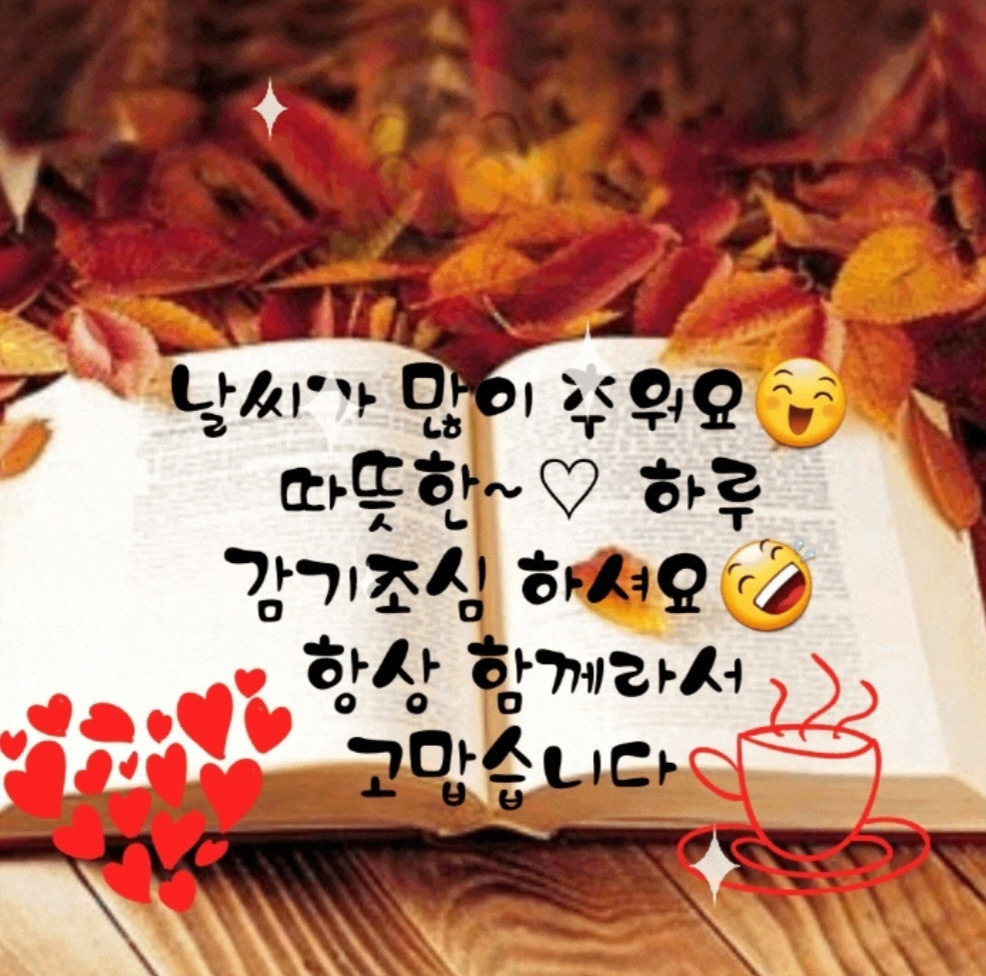 날씨가 많이 추워요😄
따뜻한~♡ 하루
감기조심 하셔요🤣
항상 함께라서
고맙습니다